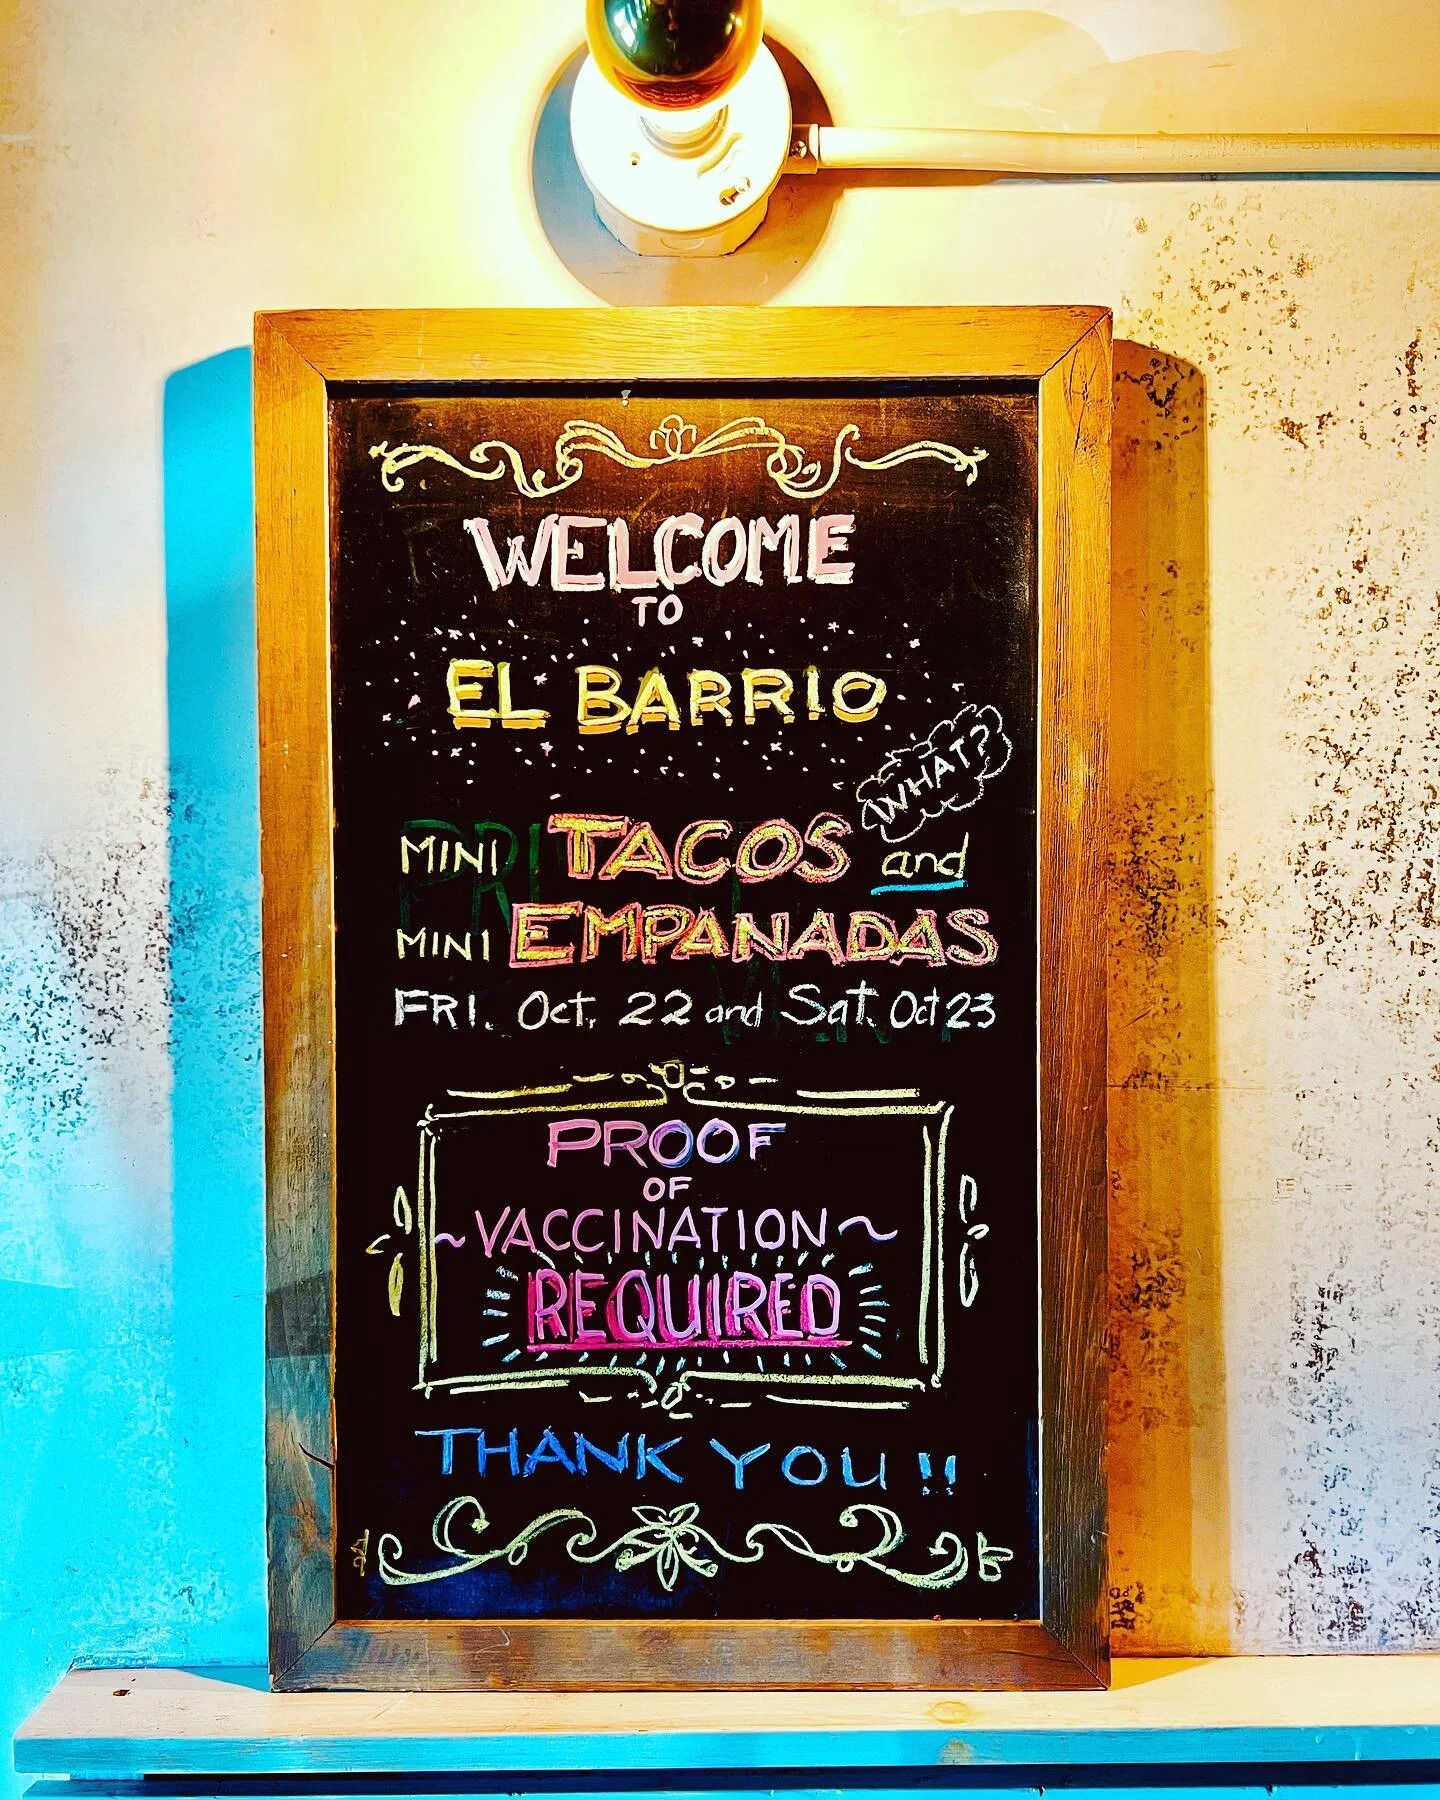 WELCOME
TO
EL BARRIO
WHAT?
MINI TACOS and
MINI EMPANADAS
FRI. Oct. 22 and Sat. Oct 23
PROOF
OF
~VACCINATION~
REQUIRED
THANK YOU!!